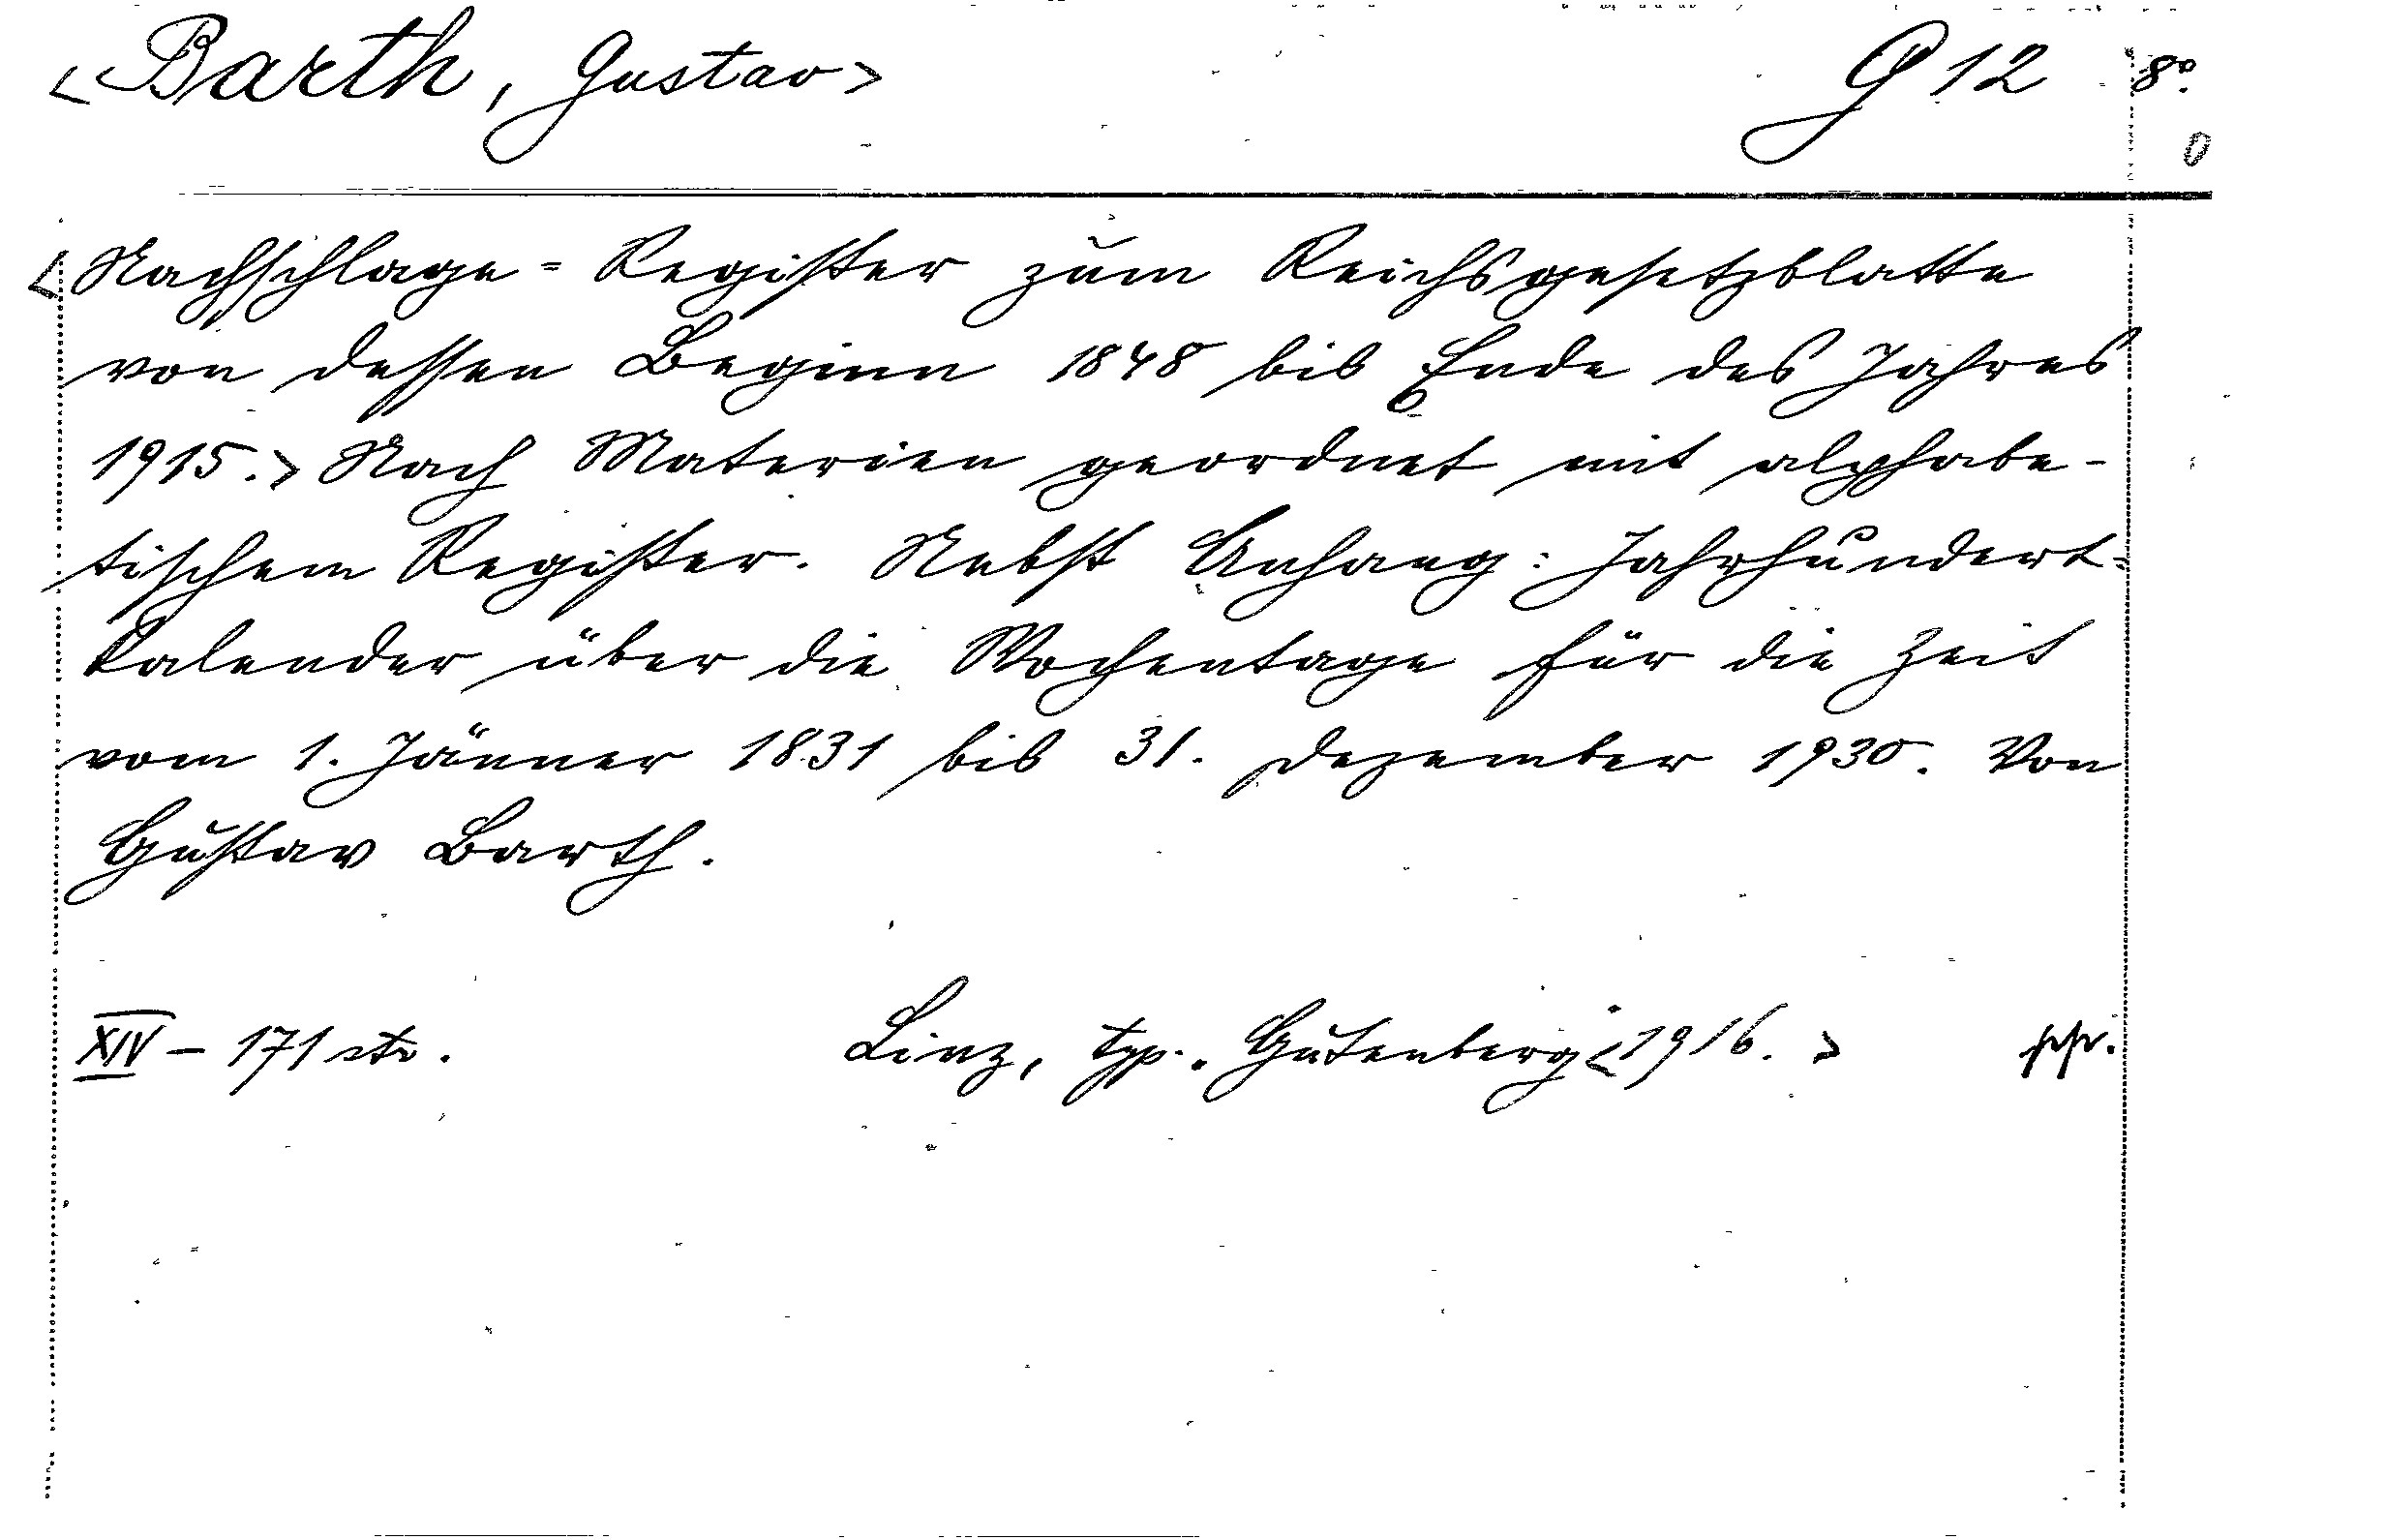 <Barth, Gustav> G 12 8°.
0
<Nachschlage=Register zum Reichsgesetzblatte
von dessen Beginn 1848 bis Ende des Jahres
1915.> Nach Materien geordnet mit alphabe-
tischem Register. Nebst Anhang: Jahrhundert=
kalender über die Wochentage für die Zeit
vom 1. Jänner 1831 bis 31. Dezember 1930. Von
Gustav Barth.
XIV – 171 str. Linz, typ. „Gutenberg“ <1916.>